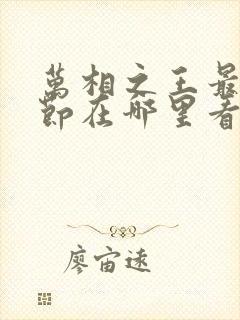 萬相之王最
節在哪里看
廖宙遠